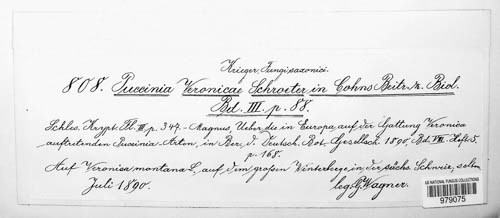 Krieger, Fungi saxonici.
808. Puccinia Veronicae Schroeter in Cohns Beitr. z. Biol.
Bd. III. p. 88.
Schles. Krypt. Fl. III, p. 347. - Magnus, Ueber die in Europa auf der Gattung Veronica
auftretenden Puccinia-Arten, in Ber. d. Deutsch. Bot. Gesellsch. 1890, Bd. VIII. Heft 5,
p. 168.
Auf Veronica montana L., auf dem großen Winterberge in der sächs. Schweiz, selten
Juli 1890. leg. G. Wagner.
US NATIONAL FUNGUS COLLECTIONS
979075